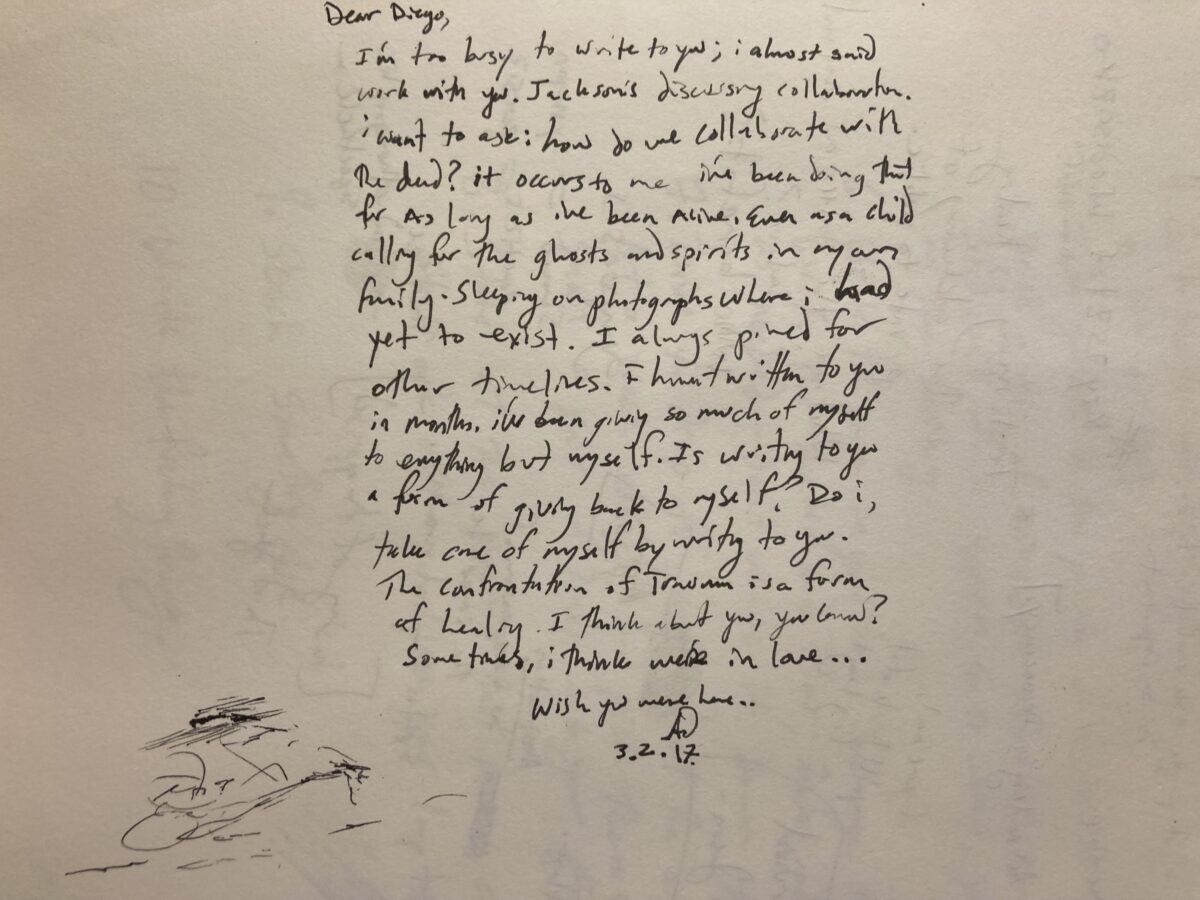 Dear Diego,
I'm too busy to write to you; i almost said
work with you. Jackson's discussing collaboration.
i want to ask: how do we collaborate with
the dead? it occurs to me i've been doing that
for As long as i've been Alive. Even as a child
calling for the ghosts and spirits in my own
family. Sleeping on photographs where i had
yet to exist. I always pined for
other timelines. I havent written to you
in months. i've been giving so much of myself
to everything but myself. Is writing to you
a form of giving back to myself? Do i,
take care of myself by writing to you.
The confrontation of Trauma is a form
of healing. I think about you, you know?
Sometimes, i think we're in love...
Wish you were here..
AD
3.2.17.